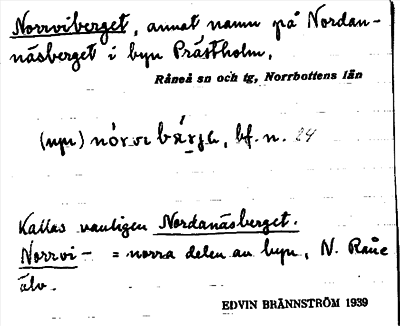 Norrviberget, annat namn på Nordan-
näsberget i byn Prästholm,
Råneå sn och tg, Norrbottens län
(nyn) bf. n. 24
Kallas vanligen Nordanäsberget.
Norrvi- = norra delen av byn, N. Råne
älv.
EDVIN BRÄNNSTRÖM 1939